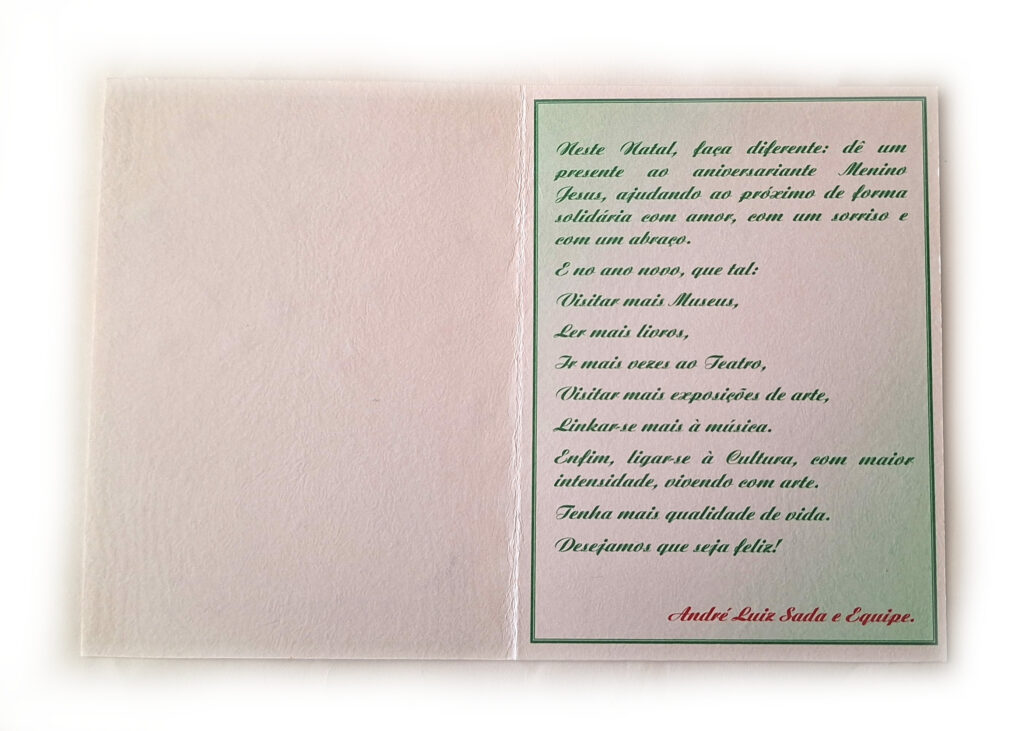 Neste Natal, faça diferente: dê um
presente ao aniversariante Menino
Jesus, ajudando ao próximo de forma
solidária com amor, com um sorriso e
com um abraço.
E no ano novo, que tal:
Visitar mais Museus,
Ler mais livros,
Ir mais vezes ao Teatro,
Visitar mais exposições de arte,
Linkar-se mais à música.
Enfim, ligar-se à Cultura, com maior
intensidade, vivendo com arte.
Tenha mais qualidade de vida.
Desejamos que seja feliz!
André Luiz Sada e Equipe.